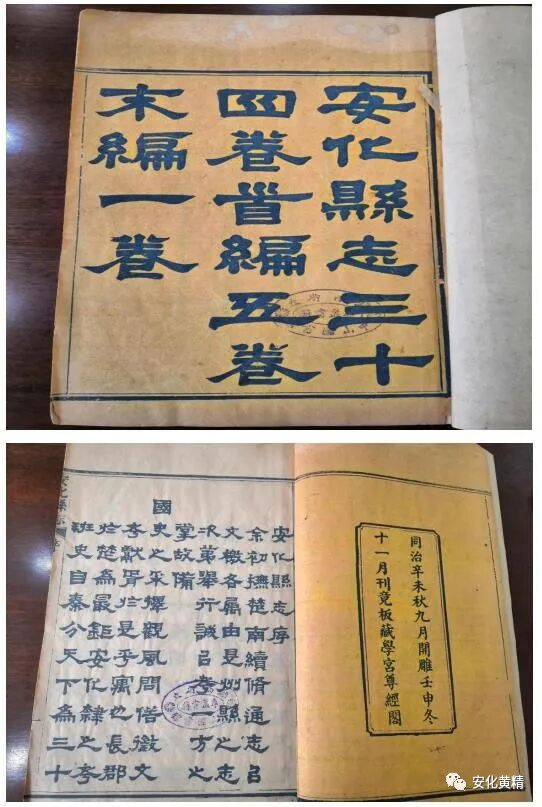 安化縣志三十
四卷首編五卷
末編一卷
同治辛未秋九月開雕壬申冬
十一月刊竟板藏學宮尊經閣
安化縣志序
余初撫楚南續脩通志吕
文檄各屬由是州縣之志
次第舉行誠吕考方之
掌故備
國史之采擇觀風問俗徵文
考獻胥於是乎寓也長郡
於楚為最鉅安化隸之考
班史自秦分天下為三十
安化縣志
安化黄精